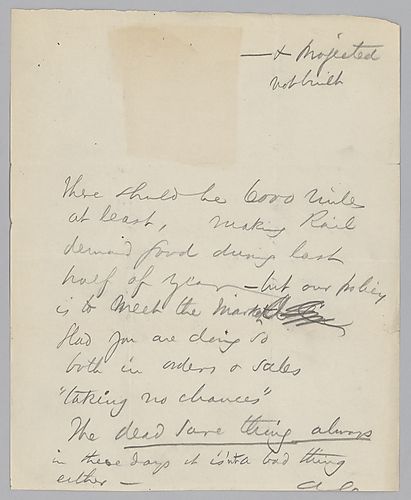 — + Projected
not built
There should be 6000 miles
at least, making Rail
demand good during last
half of year — but our policy
is to Meet the Market
Glad you are doing so
both in orders & sales
"taking no chances"
The dead sure thing always
in these days it isn't a bad thing
either —